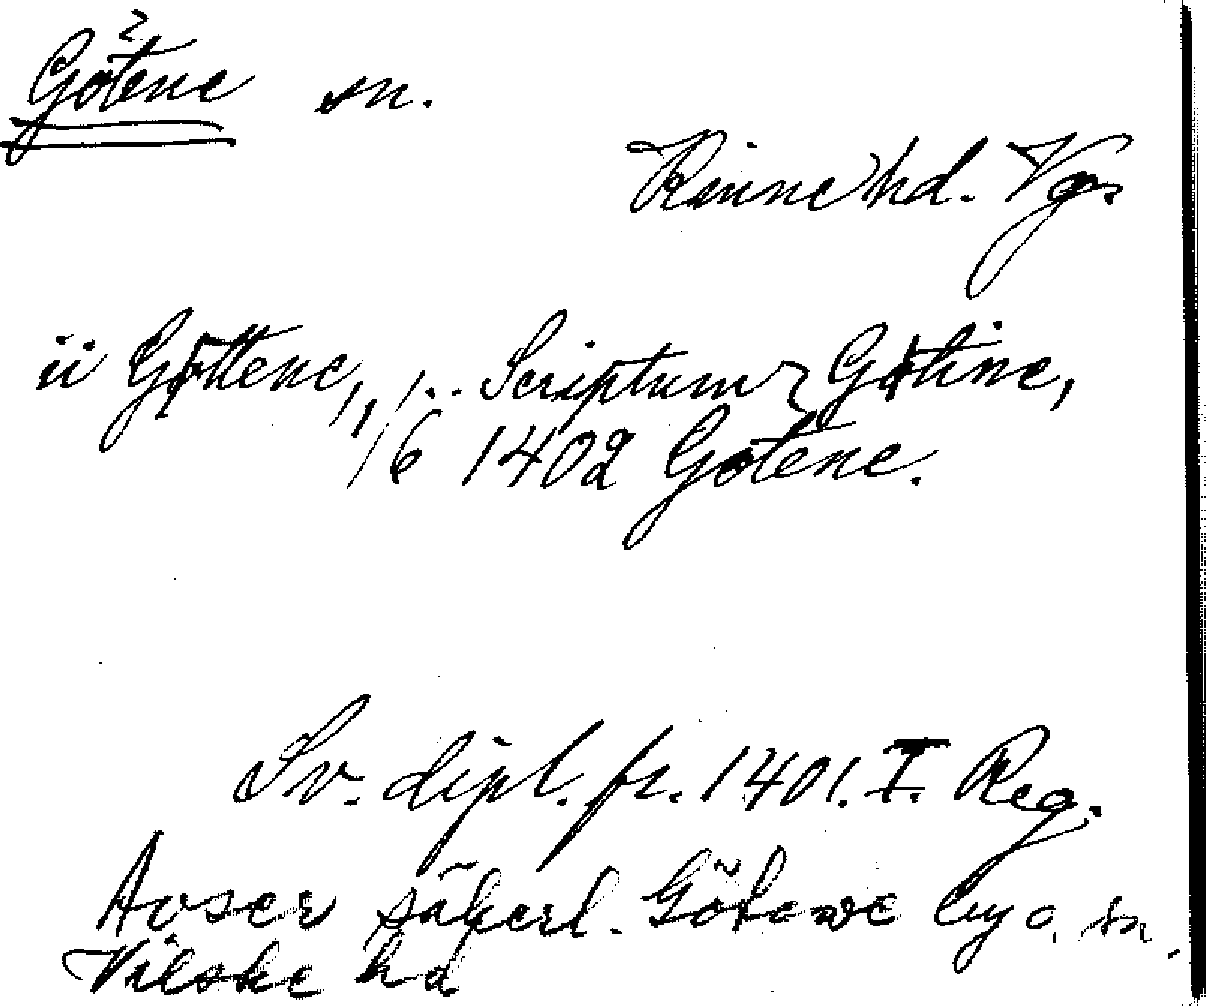 ?
Götene sn.
Kinne hd. Vg.
ii Gøttene, ... Scriptum Gøtine,
1/6 1402 Gøtene.
Sv. dipl. fr. 1401. I. Reg.
Avser säkerl. Götewe by o. sn.
Vilske hd